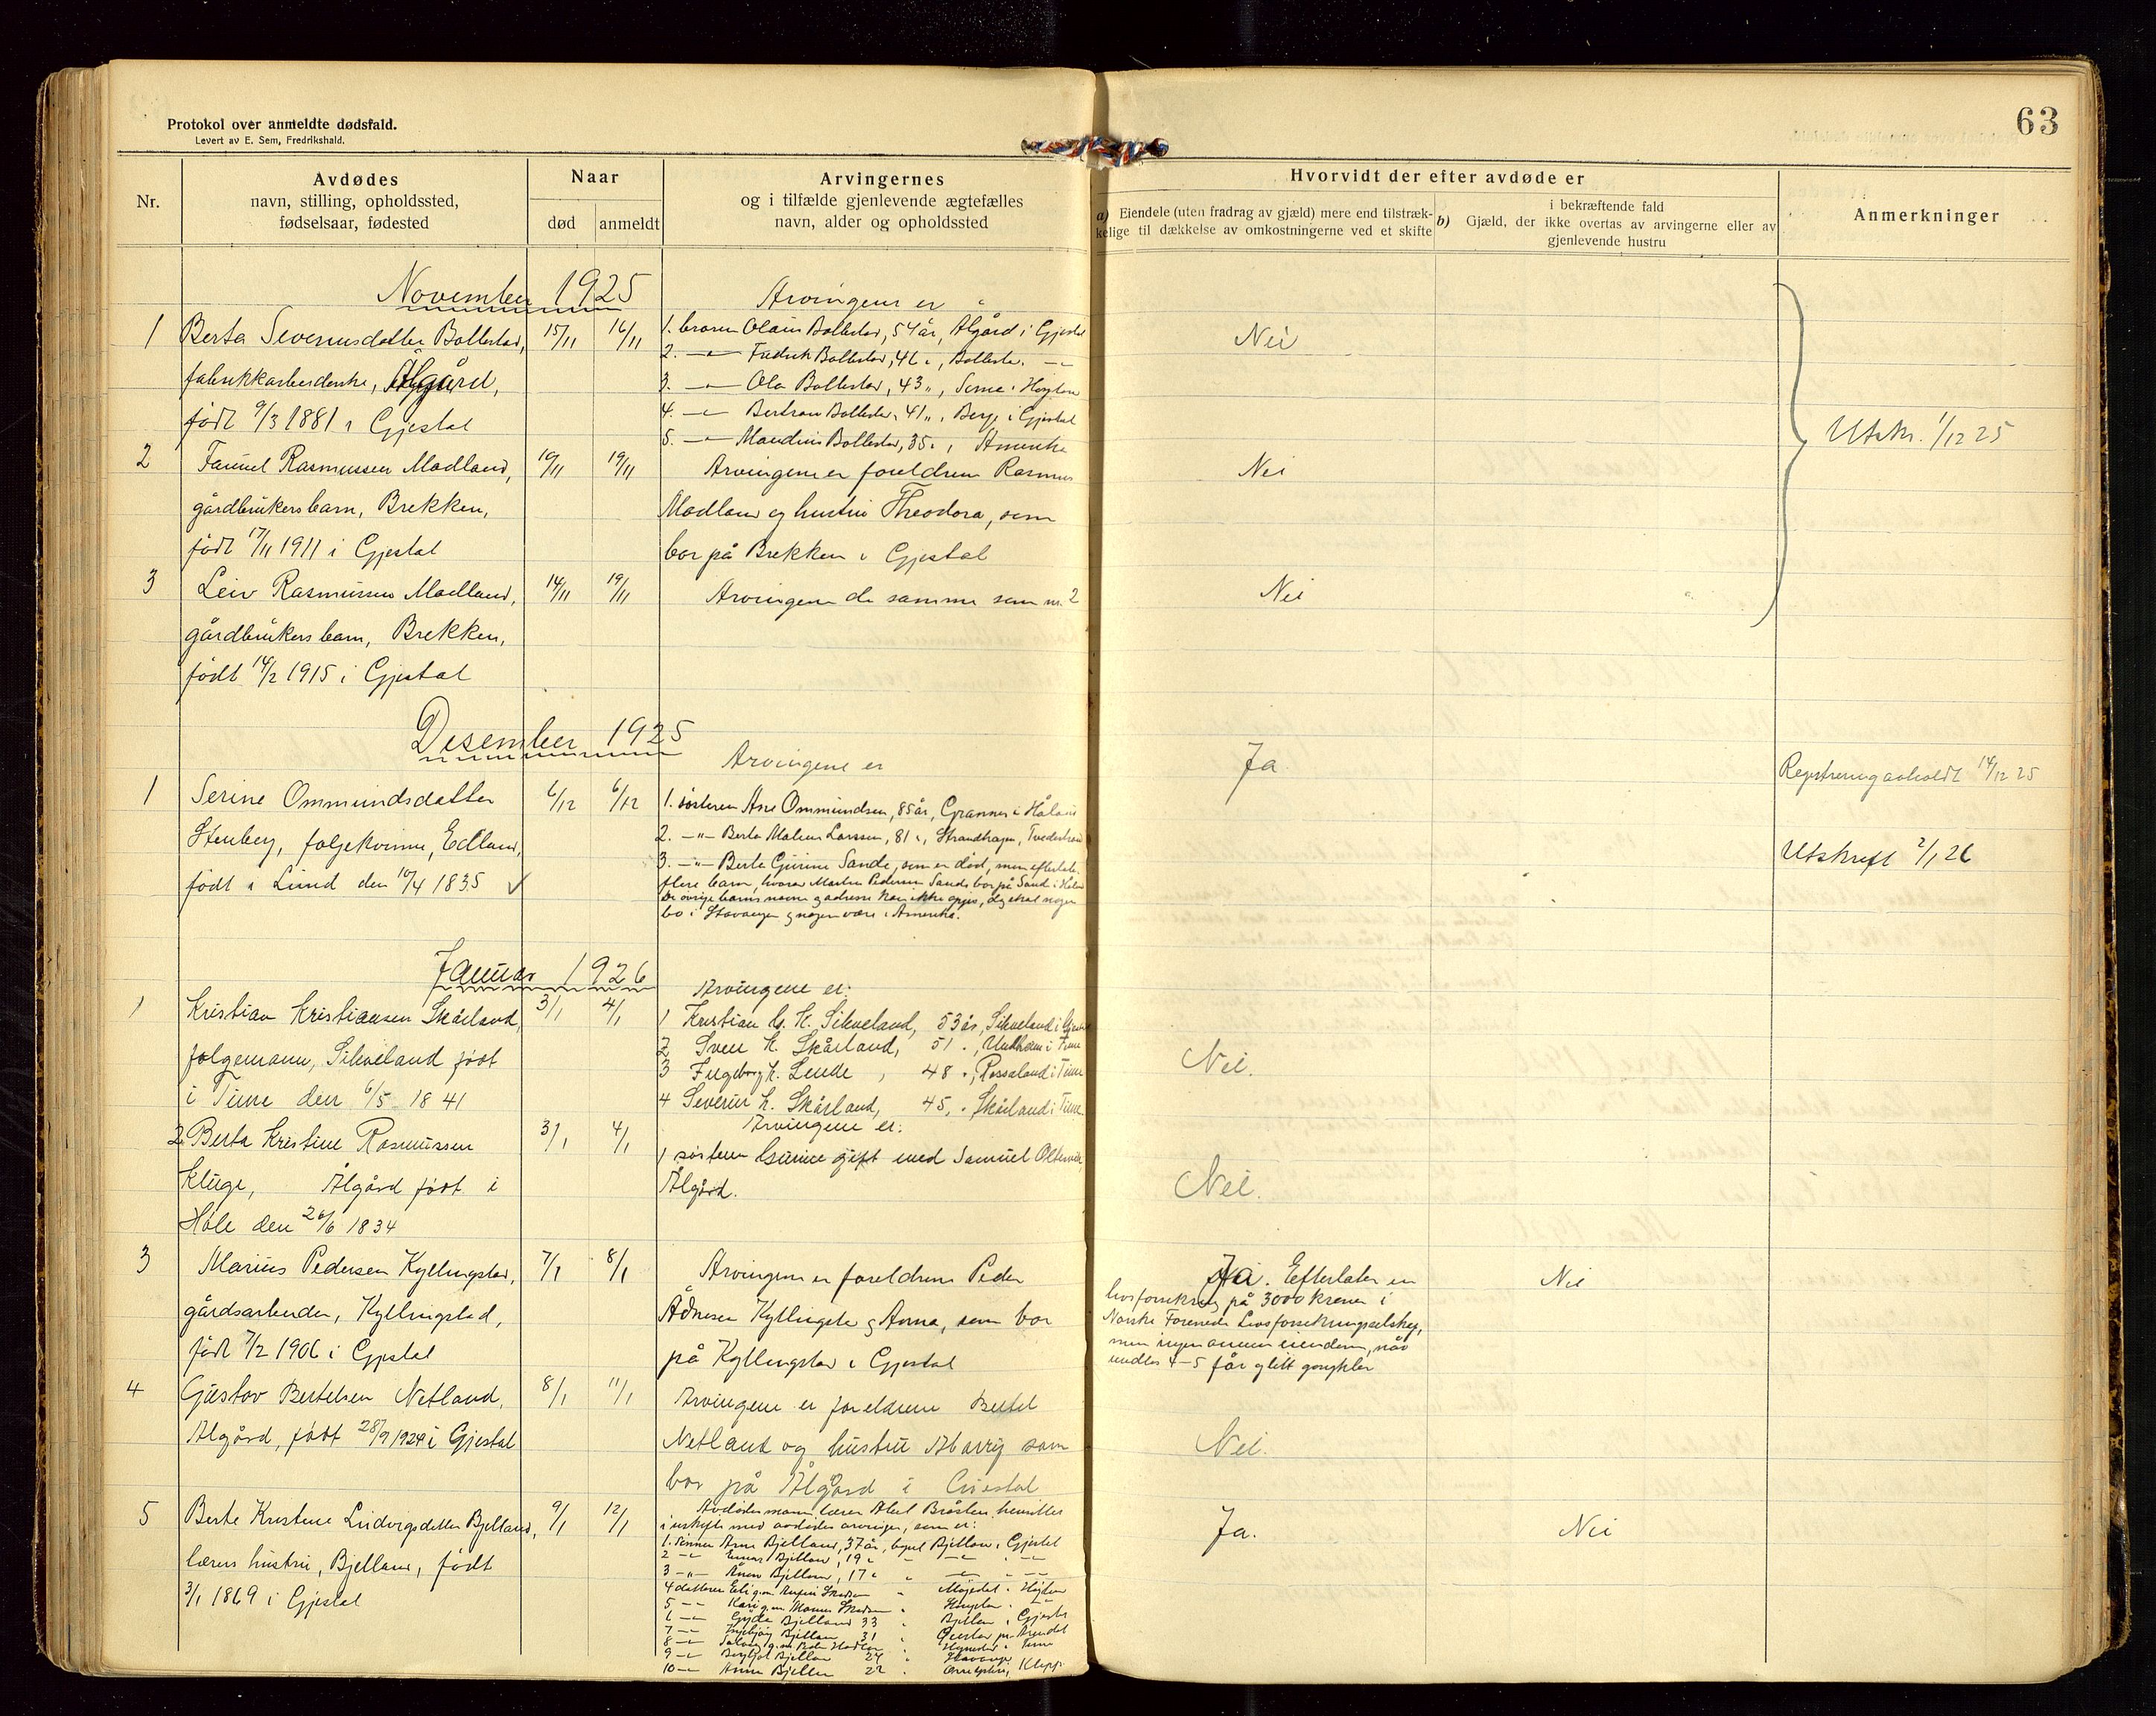 Protokol over anmeldte dødsfald.
Levert av E. Sem, Fredrikshald.
63
Nr.
Avdødes
navn, stilling, opholdssted,
fødselsaar, fødested
Naar
død
anmeldt
Arvingernes
og i tilfælde gjenlevende ægtefælles
navn, alder og opholdssted
Hvorvidt der efter avdøde er
a) Eiendele (uten fradrag av gjæld) mere end tilstræk-
kelige til dækkelse av omkostningerne ved et skifte
i bekræftende fald
b) Gjæld, der ikke overtas av arvingerne eller av
gjenlevende hustru
Anmerkninger
November 1925
1 Berta Severinsdatter Bollestad, 15/11 16/11
fabrikkarbeiderske, Ålgård,
født 9/3 1881 i Gjestal
Arvingene er
1. broren Olaus Bollestad, 54 år, Ålgård i Gjestal
2. Fredrik Bollestad, 46
3. Ola Bollestad, 43
4. Bertran Bollestad, 41 „, Berge i Gjestal
5. Bollestad, 35 Amerika
Nei
2 Rasmussen Modland, 10/11 19/11
gårdbrukers barn, Brekken,
født 17/11 1911 i Gjestal
Arvingene er foreldrene Rasmus
Modland og hustru Theodora, som
bor på Brekken i Gjestal
Nei
Utskr. 1/12 25
3 Leiv Rasmussen Modland, 14/11 19/11
gårdbrukers barn, Brekken,
født 14/2 1915 i Gjestal
Arvingene de samme som nr. 2
Nei
Desember 1925
1 Serine Ommundsdatter 6/12 6/12
Stenberg, folgekvinne, Edland,
født i Lund den 10/4 1835 ✓
Arvingene er
1. søsteren Ane Ommundsen, 85 år, Grannes i Håland
2. —„— Berta Malene Larssen, 81 Tvedestrand
3. —„— Berta Gurine Sande, som er død, men efterlate
flere barn, hvorav Martin Pedersen Sande bor på Sande i Håland
De øvrige barns navne og adresse kan ikke opgis, dog skal nogen
bo i Stavanger og nogen være i Amerika.
Ja
Registrering avholdt 14/12 25
Utskrift 2/1 26
Januar 1926
1 Kristian Kristiansen Skårland, 3/1 4/1
folgemann, Sikveland født
i Time den 6/5 1841
Arvingene er:
1 Kristian K. Sikveland, 53 år, Sikveland i
2 Sven K. Skårland, 51 Undheim i Time
3 Ingeborg K. Lende, 48 i Time
4 Severin K. Skårland, 45, Skårland i Time
Nei.
2 Berta Kristine Rasmussen 3/1 4/1
Kluge, Ålgård født i
Høle den 26/6 1834
Arvingene er:
1 søsteren Gurine gift med Samuel
Ålgård.
Nei.
3 Marius Pedersen Kyllingstad, 7/1 8/1
gårdsarbeider, Kyllingstad,
født 7/2 1906 i Gjestal
Arvingene er foreldrene Peder
Ådnesen Kyllingstad og Anna, som bor
på Kyllingstad i Gjestal
Ja. Efterlater en
livsforsikring på 3000 kroner i
Norske Forenede Livsforsikringsselskap,
men ingen annen eiendom,
4-5 får og litt gangklær
Nei
4 Gustav Bertelsen Netland, 8/1 11/1
Ålgård, født 28/9 1924 i Gjestal
Arvingene er foreldrene Bertel
Netland og hustru som
bor på Ålgård i Gjestal
Nei.
5 Berte Kristine Ludvigsdatter Bjelland, 9/1 12/1
lærers hustru, Bjelland, født
3/1 1869 i Gjestal
Avdødes mann lærer
avdødes arvinger, som er:
1. sønnen Arne Bjelland, 37 år, Bjelland i Gjestal
2 Einar Bjelland, 19
3 —„— Bjelland, 17
4 datteren
5
6 Gyda Bjelland 33 Bjelland i Gjestal
7 Ingebjørg Bjelland 31 Arendal
8
9 Bergljot Bjelland 24 Stavanger
10 Anna Bjelland 22 Klepp
Ja.
Nei